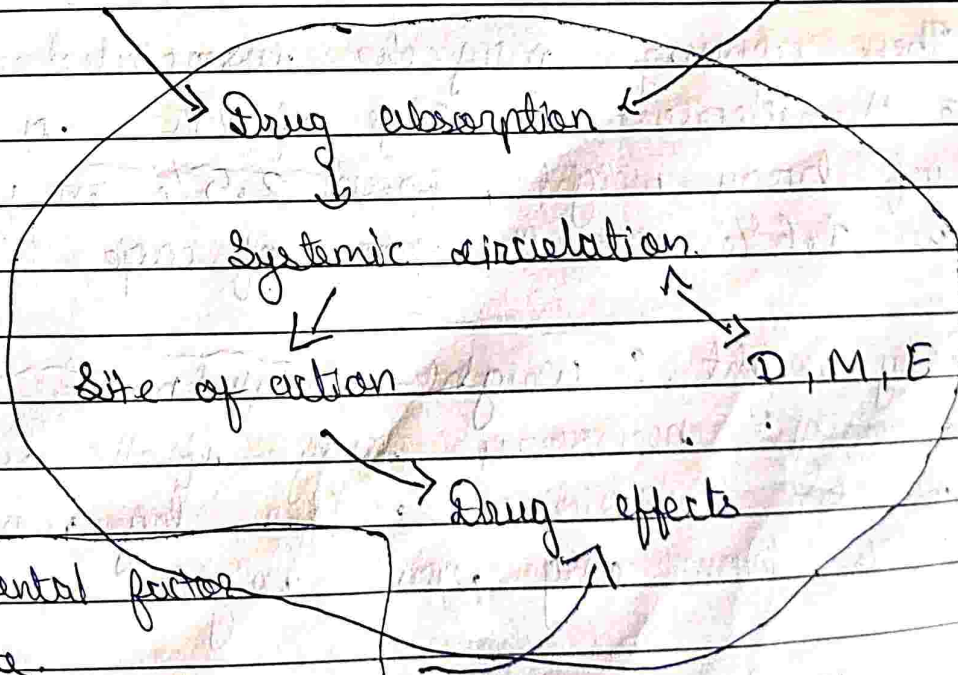 Drug absorption
Systemic circulation
Site of action
D, M, E
Drug effects
ental factor